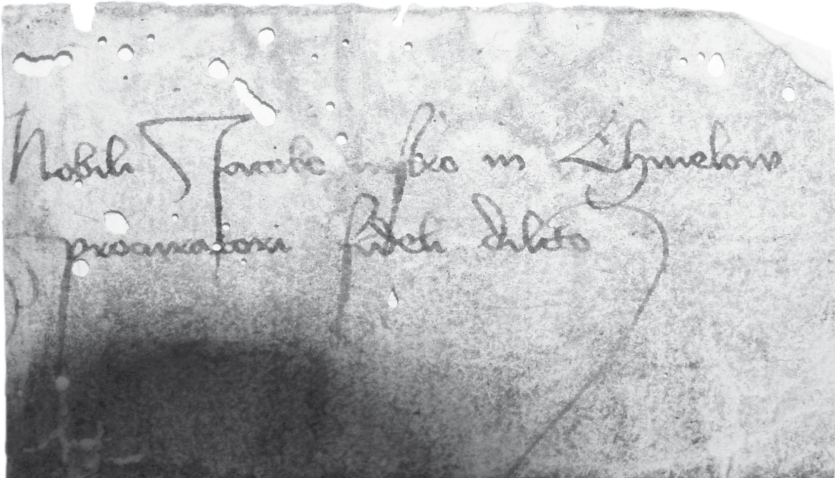 Nobili Jacobo nostro in Chmelow
procuratori fideli dilecto